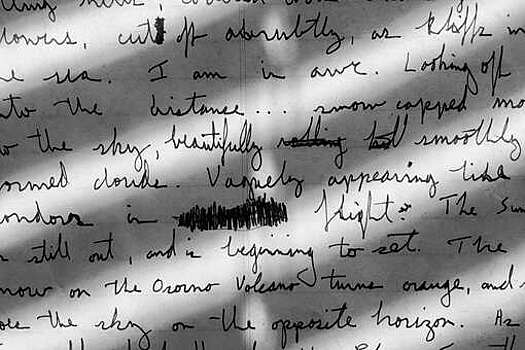 lling hills, covered with
lowers, cut off abruptly, as kliffs in
e sea. I am in awe. Looking off
nto the distance... snow capped mo
w the sky, beautifully rolling smoothly
ormed clouds. Vaguely appearing like
ondors in flight. The Sun
s still out, and is beginning to set. The
now on the Osorno Volcano turns orange, and
oes the sky on the opposite horizon. As